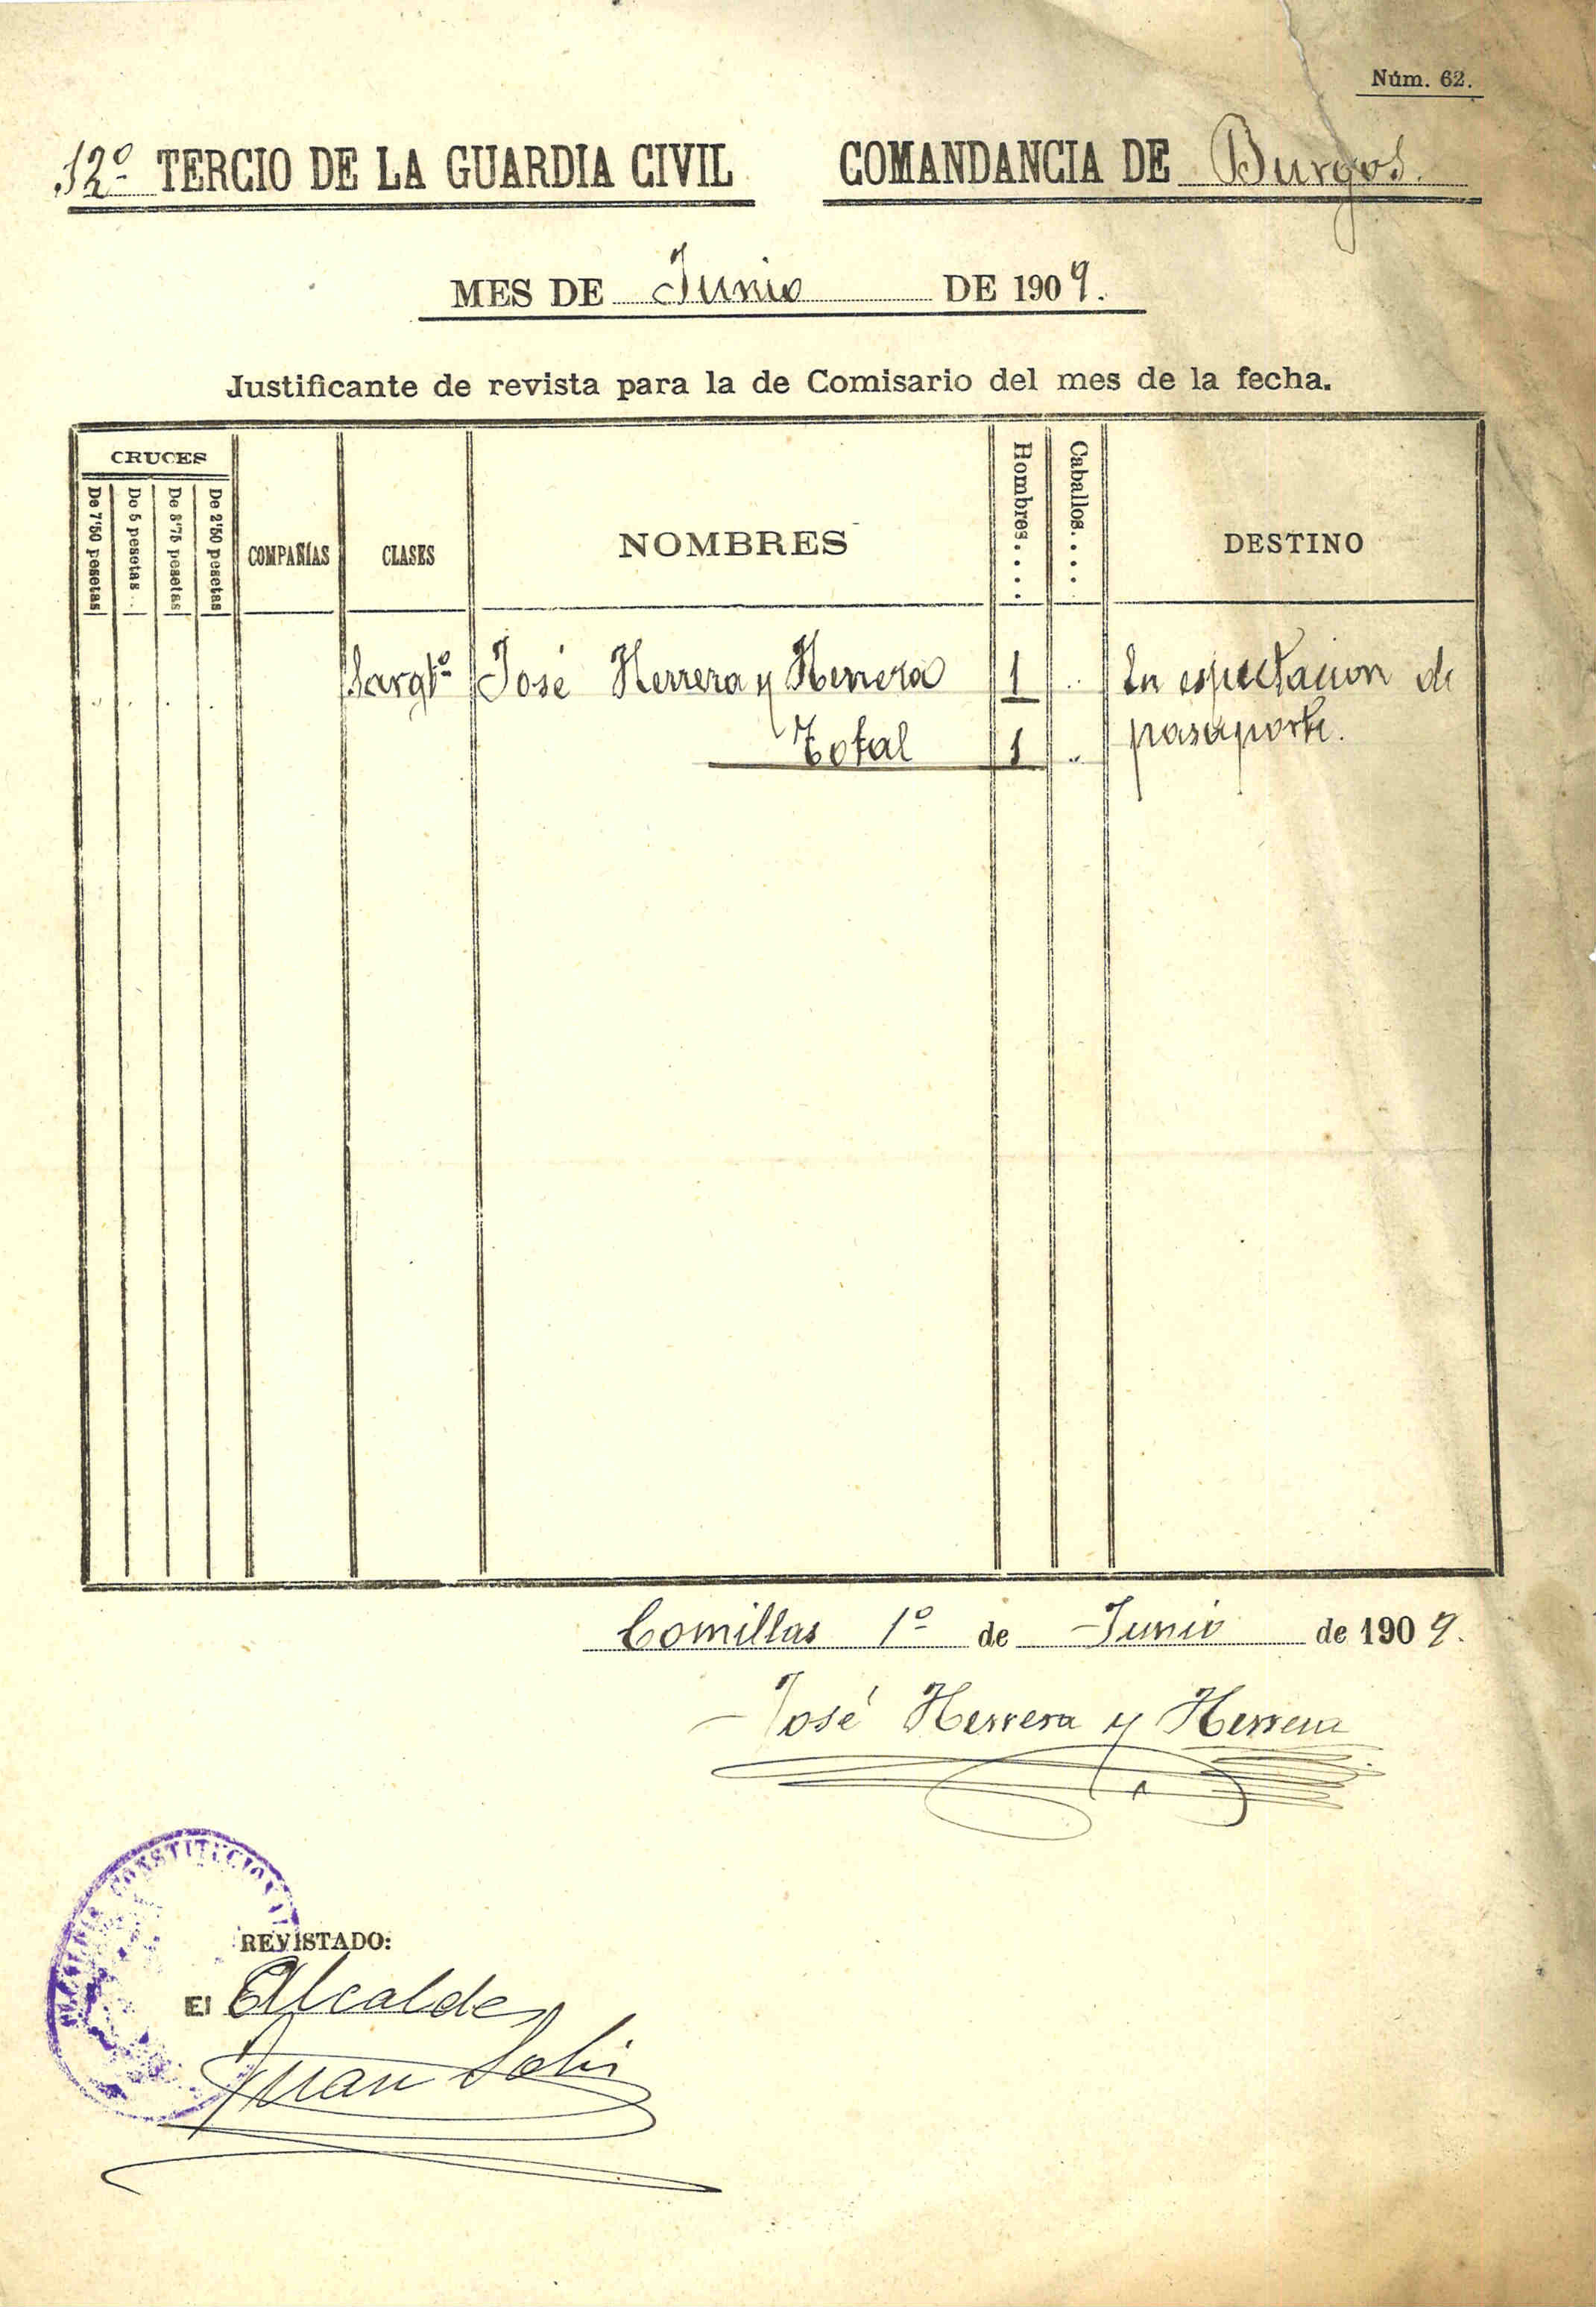 Núm. 62.
12º TERCIO DE LA GUARDIA CIVIL COMANDANCIA DE Burgos.
MES DE Junio DE 1909.
Justificante de revista para la de Comisario del mes de la fecha.
CRUCES
De 7'50 pesetas
De 5 pesetas . .
De 3'75 pesetas
De 2'50 pesetas
COMPAÑÍAS
CLASES
NOMBRES
Hombres. . . .
Caballos. . . .
DESTINO
Sargtº José Herrera y Herrera 1 " En espectacion de
Total 1 " pasaporte.
Comillas 1º de Junio de 1909.
José Herrera y Herrera
CONSTITUCIONAL
REVISTADO:
El Alcalde
Juan